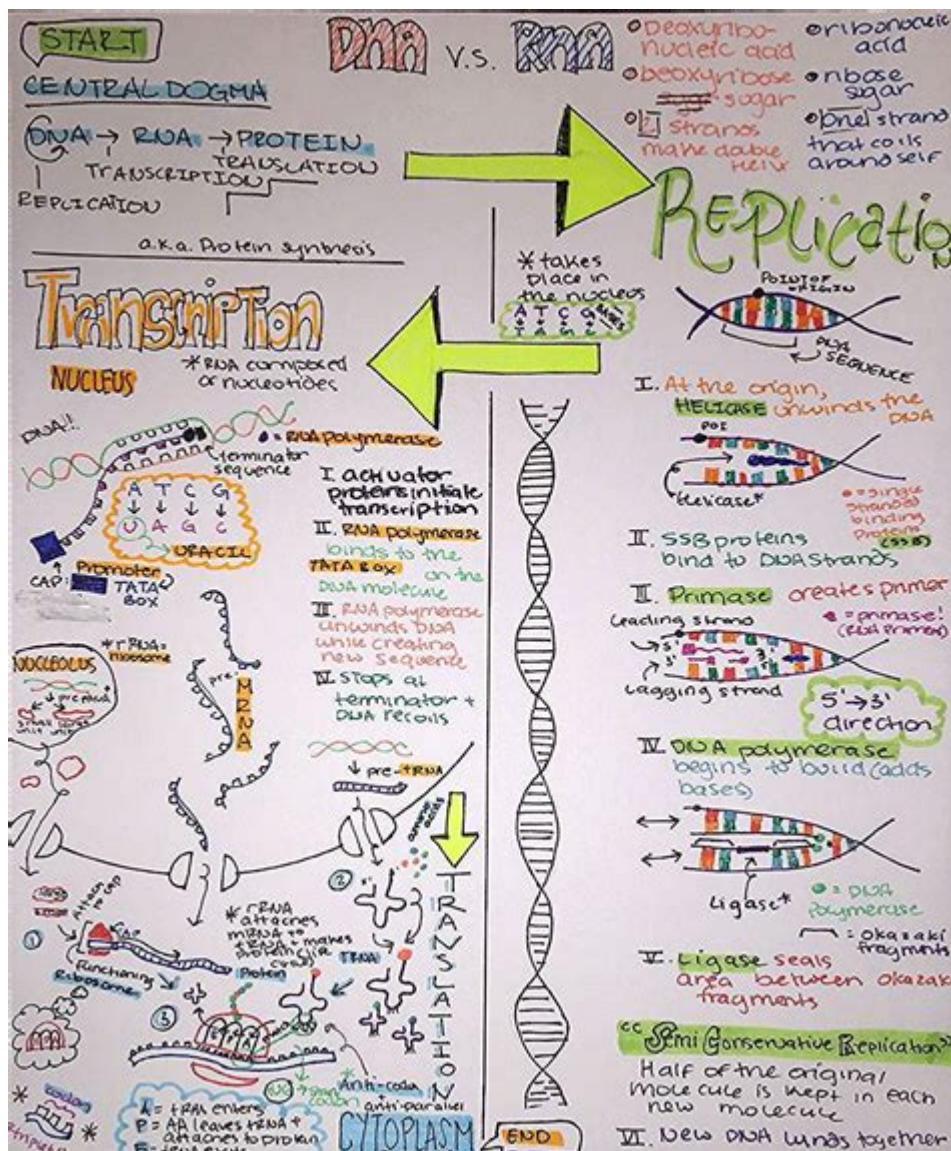 START
CENTRAL DOGMA
DNA → RNA → PROTEIN
TRANSCRIPTION
TRANSLATION
REPLICATION
a.k.a. Protein synthesis
DNA v.s. RNA
deoxyribo-
nucleic acid
deoxyribose
sugar
2 strands
make double
helix
ribonucleic
acid
ribose
sugar
one strand
that coils
around self
REPlicatioN
* takes
place in
the nucleus
A T C G
T A G C
BASES
POINT OF
ORIGIN
DNA
SEQUENCE
I. At the origin,
HELICASE unwinds the
DNA
POI
Helicase*
= single
stranded
binding
proteins
(SSB)
II. SSB proteins
bind to DNA strands
II. Primase creates primer
leading strand
= primase!
(RNA primer)
5' 3'
3' 5'
Lagging strand
5' → 3'
direction
IV. DNA polymerase
begins to build (adds
bases)
Ligase*
= DNA
polymerase
= Okazaki
fragments
V. Ligase seals
area between okazaki
fragments
"Semi Conservative Replication"
Half of the original
molecule is kept in each
new molecule
VI. New DNA winds together
Transcription
NUCLEUS
* RNA composed
of nucleotides
DNA!!
= RNA polymerase
terminator
sequence
A T C G
U A G C
URACIL
Promoter
CAP:
TATA
BOX
I. activator
proteins initiate
transcription
II. RNA polymerase
binds to the
TATA BOX on the
DNA molecule
III RNA polymerase
unwinds DNA
while creating
new sequence
IV. STOPS at
terminator +
DNA recoils
* rRNA=
ribosome
NUCLEOLUS
pre rRNA
small
unit
large
unit
pre-
MRNA
pre-tRNA
amino
acids
TRANSLATION
1
Attach
to cap
CAP
functioning
Ribosome
2
* rRNA
attaches
mRNA to
tRNA + makes
protein
Protein
TRNA
3
E P A
Anti-codon
anti-parallel
codon
triplet
A = tRNA enters
P = AA leaves tRNA +
attaches to protein
CYTOPLASM
END